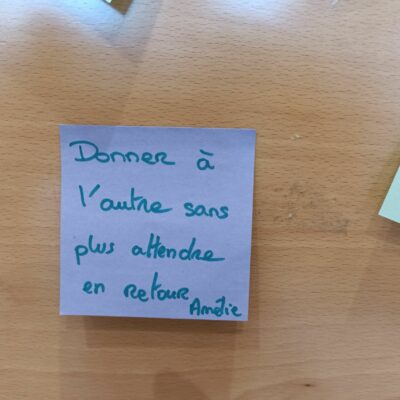 Donner à
l'autre sans
plus attendre
en retour
Amélie